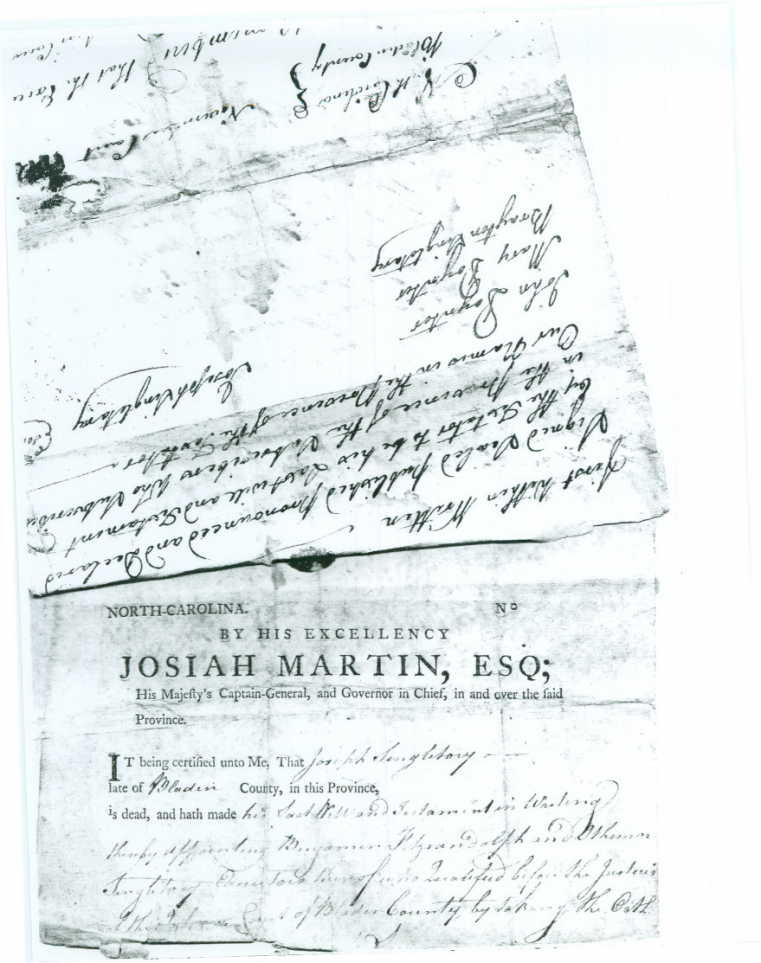 first within Written
Signed Sealed published pronounced and Declared
by the Testator to be his Last will and Testament
in the province of the Subscribers Who Subscribed
Our Names in the province of the Testator
Joseph Singletary
John Poynter
Mary Poynter
Brayton Singletary
North Carolina } November Court
Bladen County }
that the
NORTH-CAROLINA. Nº
BY HIS EXCELLENCY
JOSIAH MARTIN, ESQ;
His Majesty's Captain-General, and Governor in Chief, in and over the said
Province.
IT being certified unto Me, That Joseph Singletary
late of Bladen County, in this Province,
is dead, and hath made his Last Will and Testament in Writing
thereby appointing Benjamin Fitzrandolph and
Singletary Executors thereof who Qualified before the Justices
of the Court of Bladen County by taking the Oath